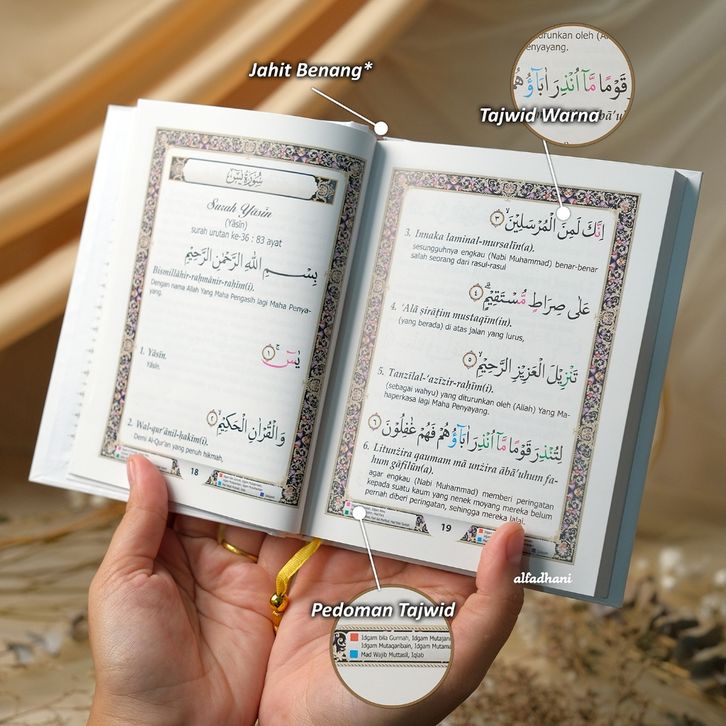 Jahit Benang*
Tajwid Warna
durunkan oleh (A
enyayang.
قَوْمًا مَّآ اُنْذِرَ اٰبَاۤؤُهُمْ
سُوْرَةُ يٰسۤ
Surah Yāsīn
(Yāsīn)
surah urutan ke-36 : 83 ayat
بِسْمِ اللّٰهِ الرَّحْمٰنِ الرَّحِيْمِ
Bismillāhir-raḥmānir-raḥīm(i).
Dengan nama Allah Yang Maha Pengasih lagi Maha Penya-
yang.
يٰسۤ ۚ ١
1. Yāsīn.
Yāsīn.
وَالْقُرْاٰنِ الْحَكِيْمِۙ ٢
2. Wal-qur'ānil-ḥakīm(i).
Demi Al-Qur'an yang penuh hikmah,
18
اِنَّكَ لَمِنَ الْمُرْسَلِيْنَۙ ٣
3. Innaka laminal-mursalīn(a).
sesungguhnya engkau (Nabi Muhammad) benar-benar
salah seorang dari rasul-rasul
عَلٰى صِرَاطٍ مُّسْتَقِيْمٍۗ ٤
4. 'Alā ṣirāṭim mustaqīm(in).
(yang berada) di atas jalan yang lurus,
تَنْزِيْلَ الْعَزِيْزِ الرَّحِيْمِۙ ٥
5. Tanzīlal-'azīzir-raḥīm(i).
(sebagai wahyu) yang diturunkan oleh (Allah) Yang Ma-
haperkasa lagi Maha Penyayang.
لِتُنْذِرَ قَوْمًا مَّآ اُنْذِرَ اٰبَاۤؤُهُمْ فَهُمْ غٰفِلُوْنَ ٦
6. Litunżira qaumam mā unżira ābā'uhum fa-
hum gāfilūn(a).
agar engkau (Nabi Muhammad) memberi peringatan
kepada suatu kaum yang nenek moyang mereka belum
pernah diberi peringatan, sehingga mereka lalai.
19
alfadhani
Pedoman Tajwid
Idgam bila Gunnah, Idgam Mutajan
Idgam Mutaqaribain, Idgam Mutama
Mad Wajib Muttasil, Iqlab